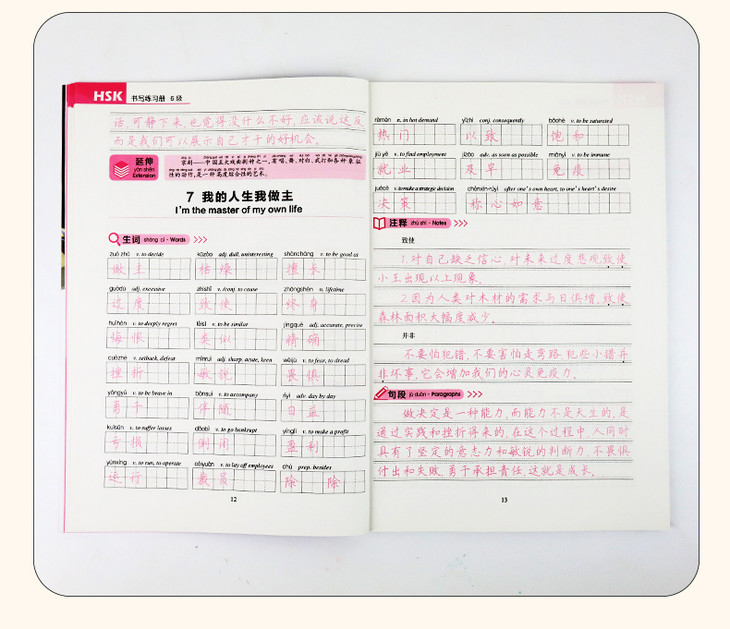 HSK 书写练习册 6 级
话,可静下来,也觉得没什么不好,应该说这反
而是我们可以展示自己才干的好机会。
延伸
yán shēn
Extension
京剧——中国五大戏曲剧种之一,有唱、做、对白、武打和各种象征
性的动作,是一种高度综合性的艺术。
7 我的人生我做主
I'm the master of my own life
生词 shēng cí - Words
zuò zhǔ v. to decide
做主
kūzào adj. dull, uninteresting
枯燥
shàncháng v. to be good at
擅长
guòdù adj. excessive
过度
zhìshǐ v./conj. to cause
致使
zhōngshēn n. lifetime
终身
huǐhèn v. to deeply regret
悔恨
lèisì v. to be similar
类似
jīngquè adj. accurate, precise
精确
cuòzhé v. setback, defeat
挫折
mǐnruì adj. sharp, acute, keen
敏锐
wèijù v. to fear, to dread
畏惧
yǒngyú v. to be brave in
勇于
bànsuí v. to accompany
伴随
rìyì adv. day by day
日益
kuīsǔn v. to suffer losses
亏损
dǎobì v. to go bankrupt
倒闭
yínglì v. to make a profit
盈利
yùnxíng v. to run, to operate
运行
cáiyuán v. to lay off employees
裁员
chú prep. besides
除 除
12
rèmén n. in hot demand
热门
yǐzhì conj. consequently
以致
bǎohé v. to be saturated
饱和
jiù yè v. to find employment
就业
jízǎo adv. as soon as possible
及早
miǎnyì v. to be immune
免疫
juécè v. to make a strategic decision
决策
chènxīn-rúyì after one's own heart, to one's heart's desire
称心如意
注释 zhù shì - Notes
致使
1.对自己缺乏信心,对未来过度悲观致使
小王出现以上现象。
2.因为人类对木材的需求与日俱增,致使
森林面积大幅度减少。
并非
不要怕犯错,不要害怕走弯路,犯些小错并
非坏事,它会增加我们的心灵免疫力。
句段 jù duàn - Paragraphs
做决定是一种能力,而能力不是天生的,是
通过实践和挫折得来的,在这个过程中,人同时
具有了坚定的意志力和敏锐的判断力,不畏惧
付出和失败,勇于承担责任,这就是成长。
13